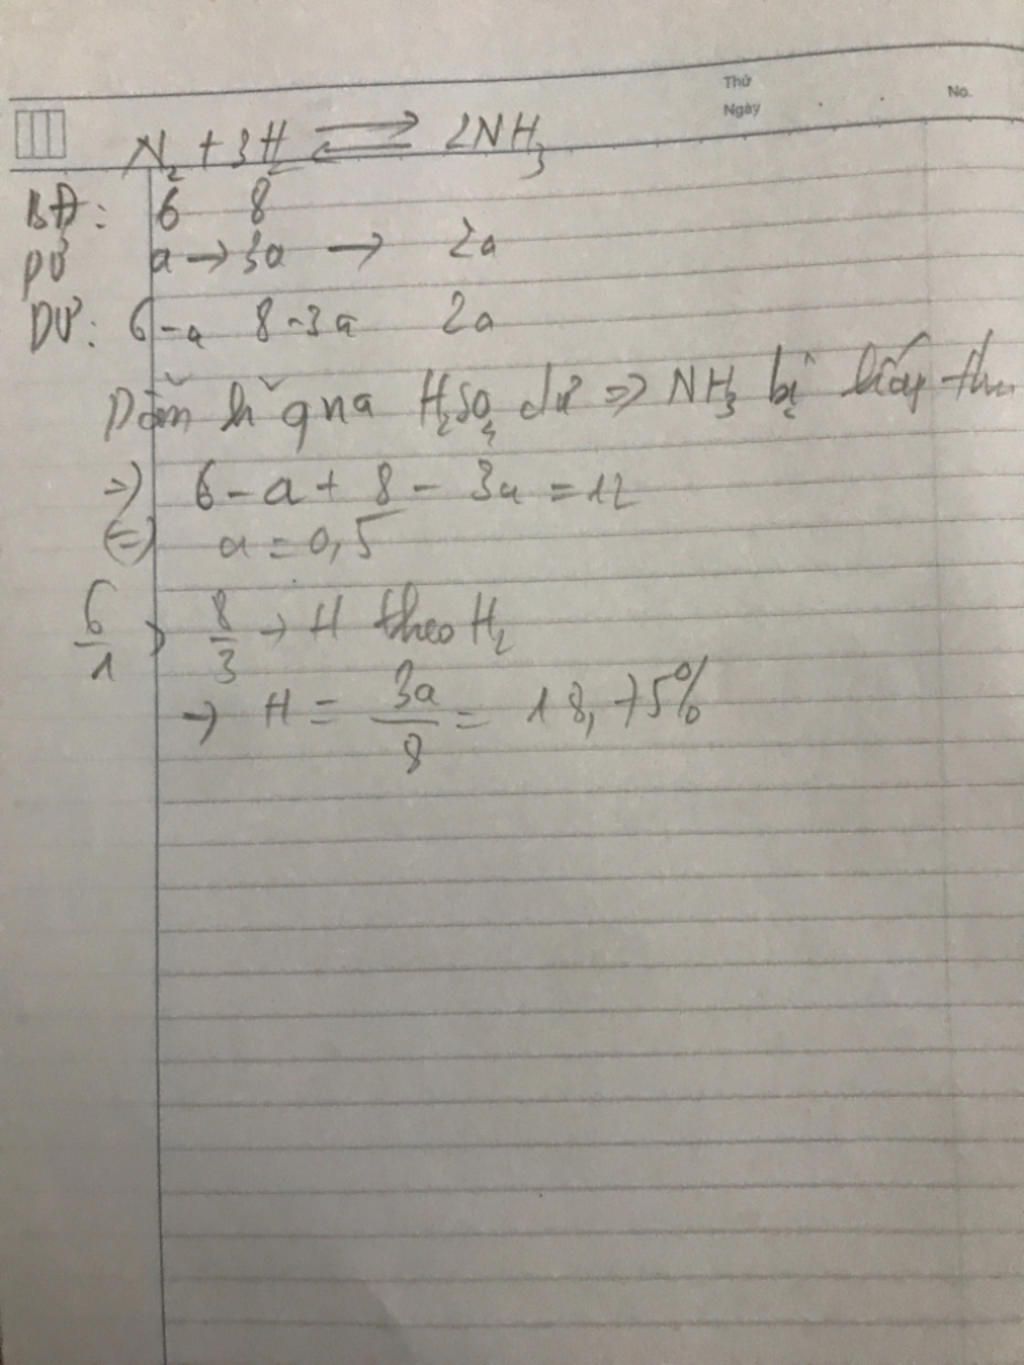 Thứ
Ngày
No.
N₂ + 3H₂ ⇌ 2NH₃
BĐ: 6 8
pứ a → 3a → 2a
DƯ: 6-a 8-3a 2a
Dẫn qua H₂SO₄ dư => NH₃ bị hấp thu
=> 6 - a + 8 - 3a = 12
(=) a = 0,5
6/1 > 8/3 → H theo H₂
→ H = 3a/8 = 18,75%